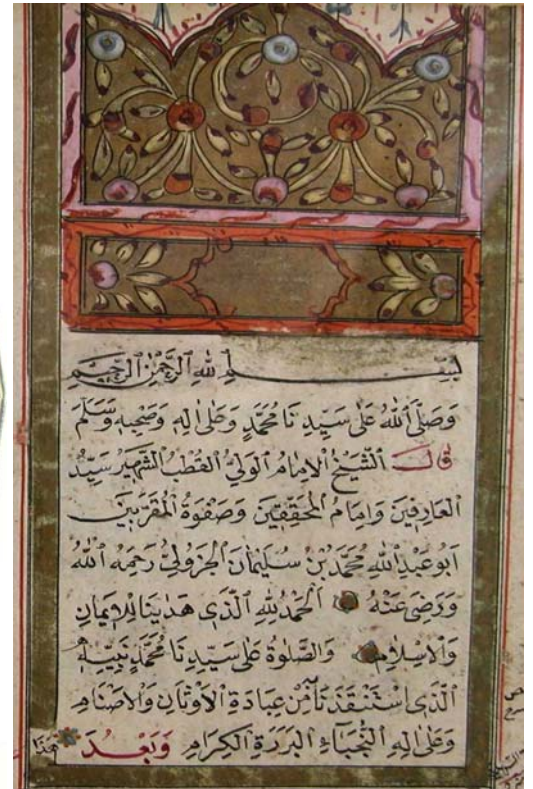 بِسْمِ اللهِ الرَّحْمٰنِ الرَّحِيْمِ
وَصَلَّى اللهُ عَلٰى سَيِّدِنَا مُحَمَّدٍ وَعَلٰى اٰلِهٖ وَصَحْبِهٖ وَسَلَّمَ
قَالَ الشَّيْخُ الْاِمَامُ الْوَلِيُّ الْقُطْبُ الشَّهِيْرُ سَيِّدُ
الْعَارِفِيْنَ وَاِمَامُ الْمُحَقِّقِيْنَ وَصَفْوَةُ الْمُقَرَّبِيْنَ
اَبُو عَبْدِ اللهِ مُحَمَّدُ بْنُ سُلَيْمَانَ الْجَزُوْلِيُّ رَحِمَهُ اللهُ
وَرَضِيَ عَنْهُ اَلْحَمْدُ لِلّٰهِ الَّذِيْ هَدٰينَا لِلْاِيْمَانِ
وَالْاِسْلَامِ وَالصَّلٰوةُ عَلٰى سَيِّدِنَا مُحَمَّدٍ نَبِيِّهٖ
الَّذِيْ اسْتَنْقَذَنَا مِنْ عِبَادَةِ الْاَوْثَانِ وَالْاَصْنَامِ
وَعَلٰى اٰلِهِ النُّجَبَآءِ الْبَرَرَةِ الْكِرَامِ وَبَعْدُ هٰذَا